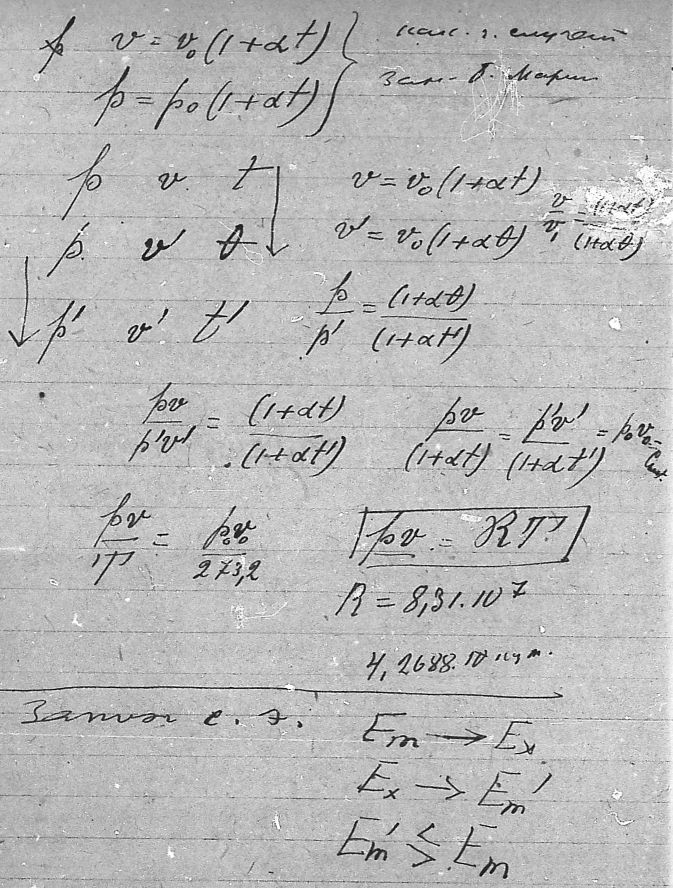 p v = v₀(1+αt) }
p = p₀(1+αt)
p v t v = v₀(1+αt)
p v' θ v' = v₀(1+αθ) v/v₁ = (1+αt)/(1+αθ)
p' v' t' p/p' = (1+αθ)/(1+αt')
pv/p'v' = (1+αt)/(1+αt') pv/(1+αt) = p'v'/(1+αt') = p₀v₀ =
pv/T = p₀v₀/273,2 pv = RT
R = 8,31.10⁷
4,2688.10
Eₘ → Eₓ
Eₓ → Eₘ'
Eₘ' ≶ Eₘ